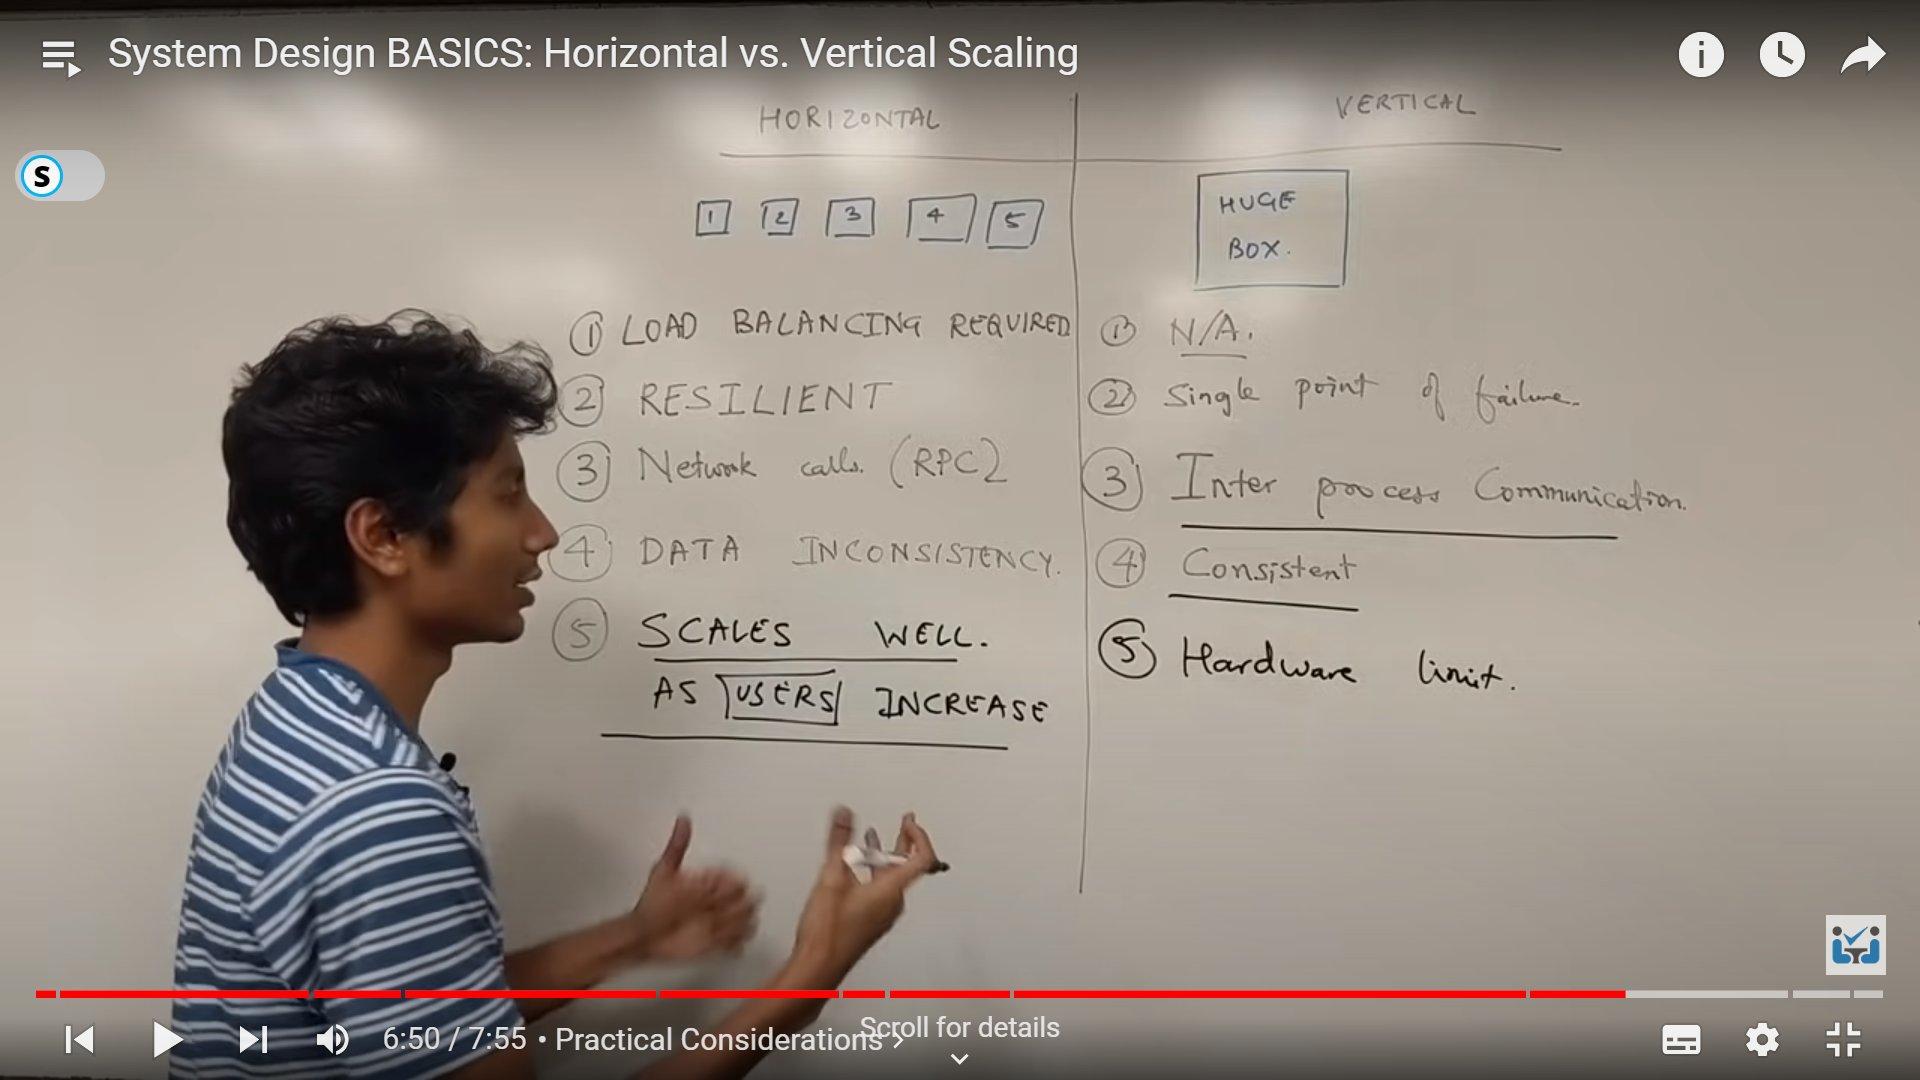 System Design BASICS: Horizontal vs. Vertical Scaling
S
HORIZONTAL
VERTICAL
1 2 3 4 5
HUGE
BOX.
1 LOAD BALANCING REQUIRED
2 RESILIENT
3 Network calls. (RPC)
4 DATA INCONSISTENCY.
5 SCALES WELL.
AS USERS INCREASE
1 N/A.
2 Single point of failure.
3 Inter process Communication.
4 Consistent
5 Hardware limit.
6:50 / 7:55 • Practical Considerations ›
Scroll for details